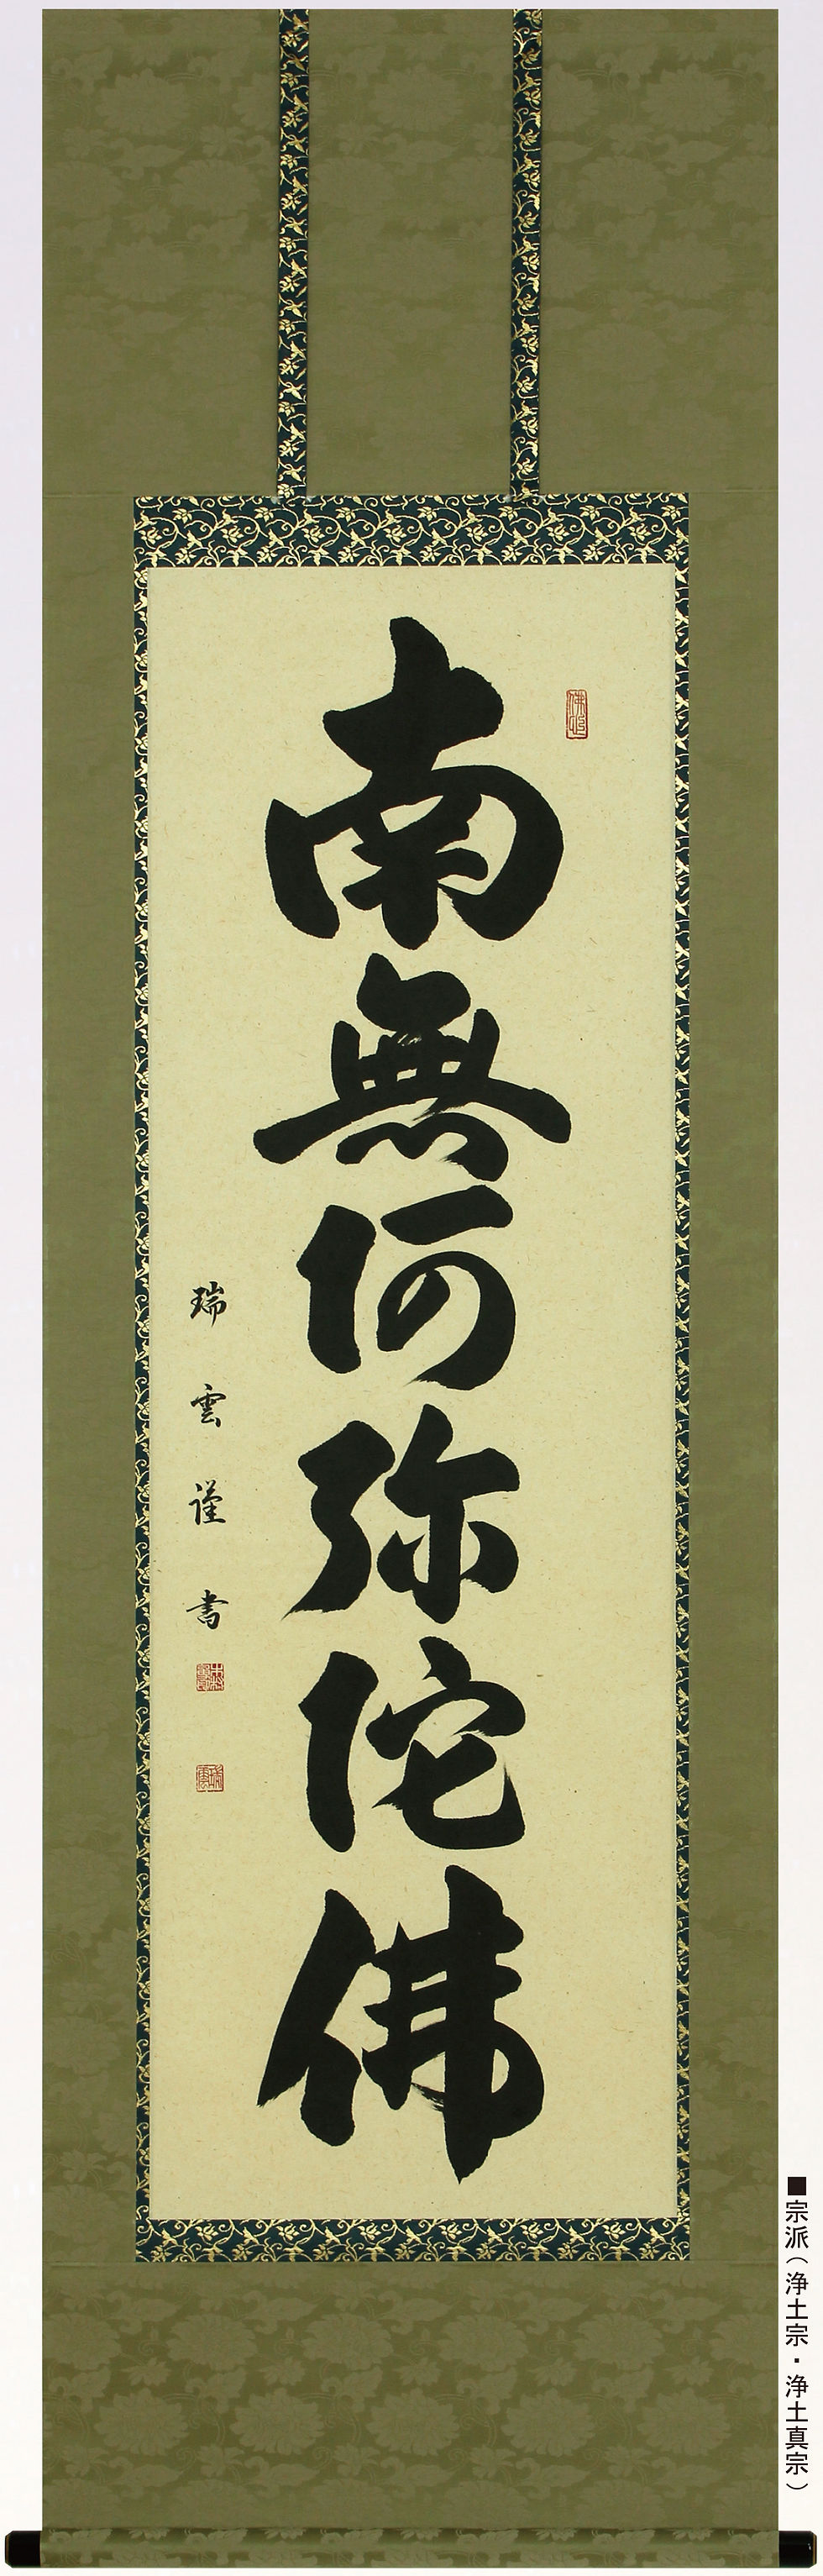 南無阿弥陀佛
瑞雲謹書
■宗派（浄土宗・浄土真宗）